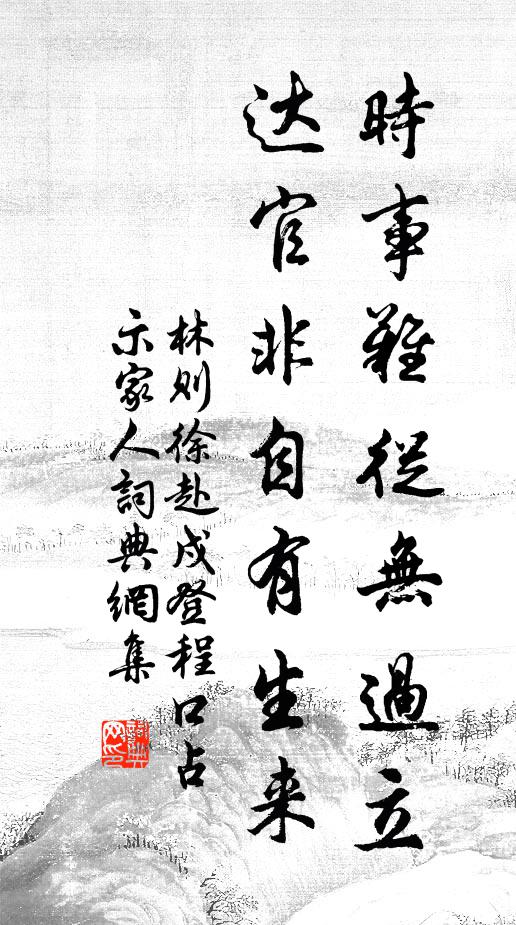 時事難從無過立
达官非自有生来
林则徐赴戍登程口占
示家人詞典網集